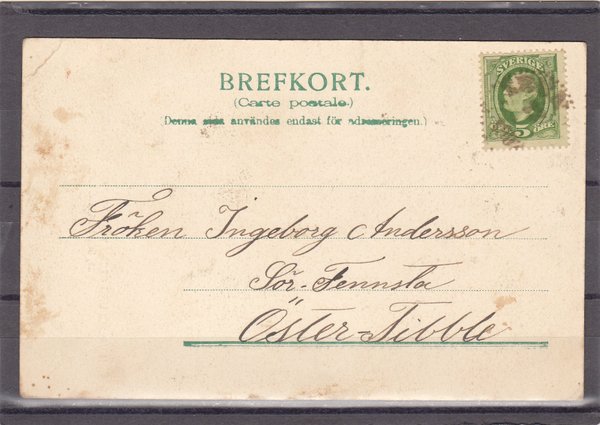 BREFKORT.
(Carte postale.)
Denna sida användes endast för adresseringen.)
SVERIGE
5 ÖRE
Fröken Ingeborg Andersson
Sör-Fennsta
Öster-Tibble